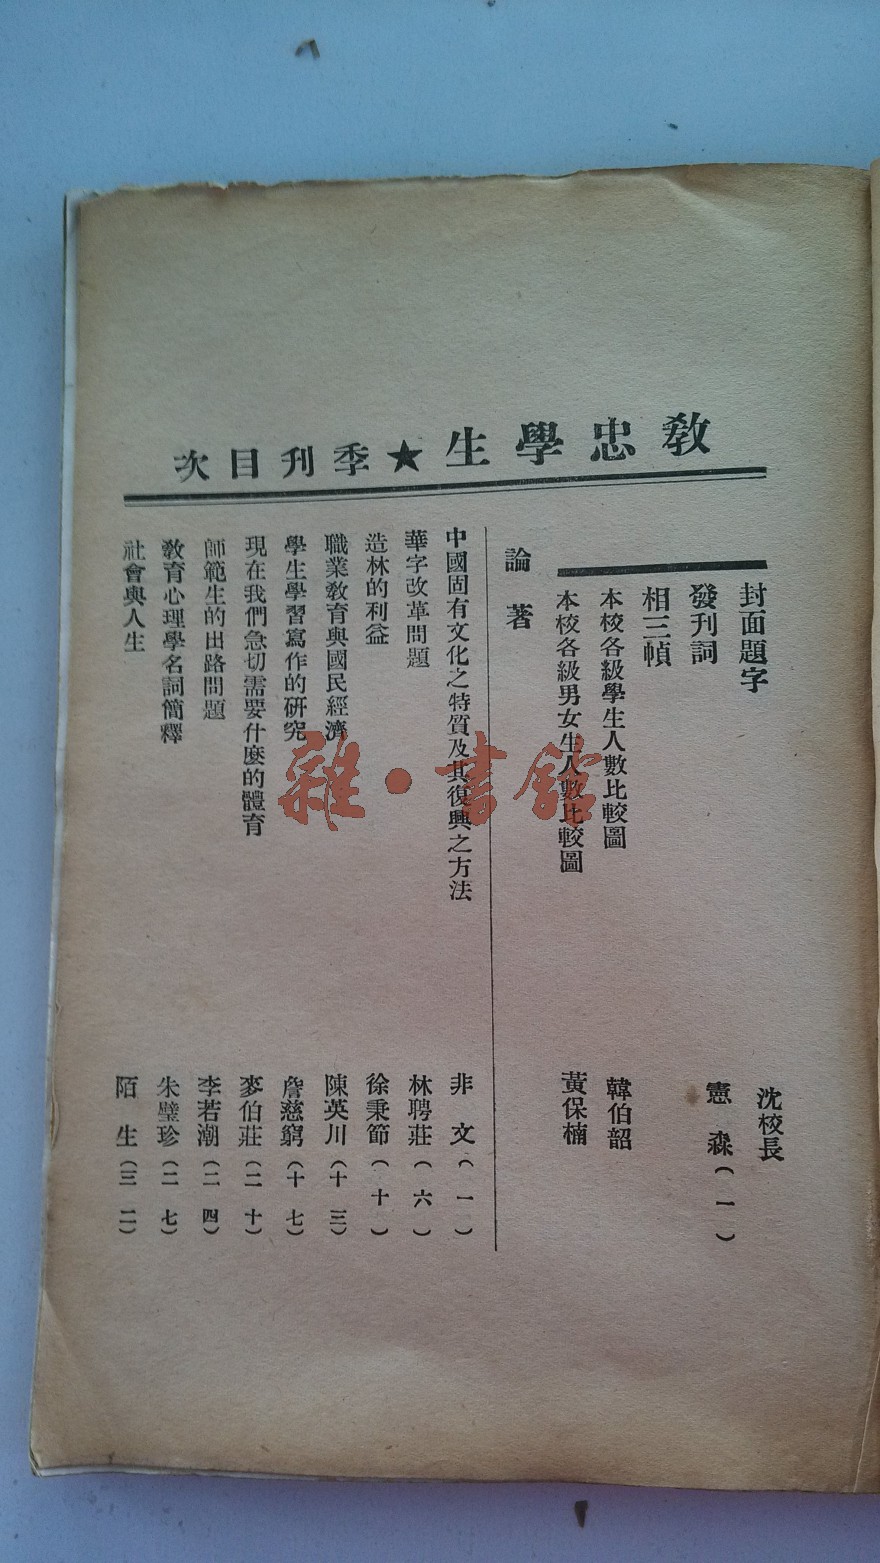 教忠學生★季刊目次
封面題字 沈校長
發刊詞 憲森(一)
相三幀
本校各級學生人數比較圖 韓伯韶
本校各級男女生人數比較圖 黃保楠
論著
中國固有文化之特質及其復興之方法 非文(一)
華字改革問題 林聘莊(六)
造林的利益 徐秉節(十)
職業教育與國民經濟 陳英川(十三)
學生學習寫作的研究 詹慈窮(十七)
現在我們急切需要什麼的體育 麥伯莊(二十)
師範生的出路問題 李若潮(二四)
教育心理學名詞簡釋 朱璧珍(二七)
社會與人生 陌生(三二)
雜·書館